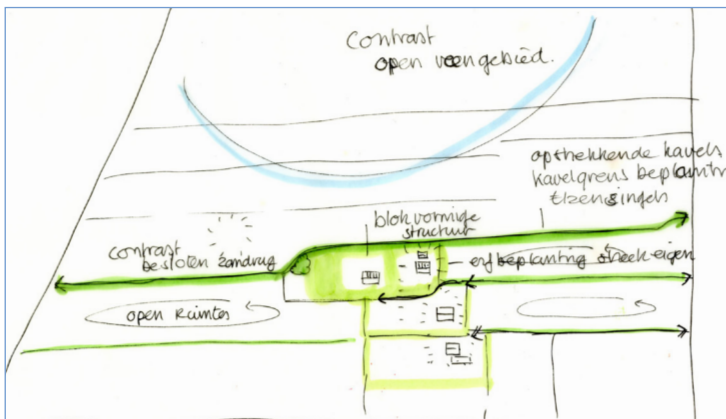 Contrast
open veengebied.
opstrekkende kavels
kavelgrens beplantin
Elzensingels
blokvormige
structuur
contrast
besloten zandrug
erfbeplanting streekeigen
open Ruimtes